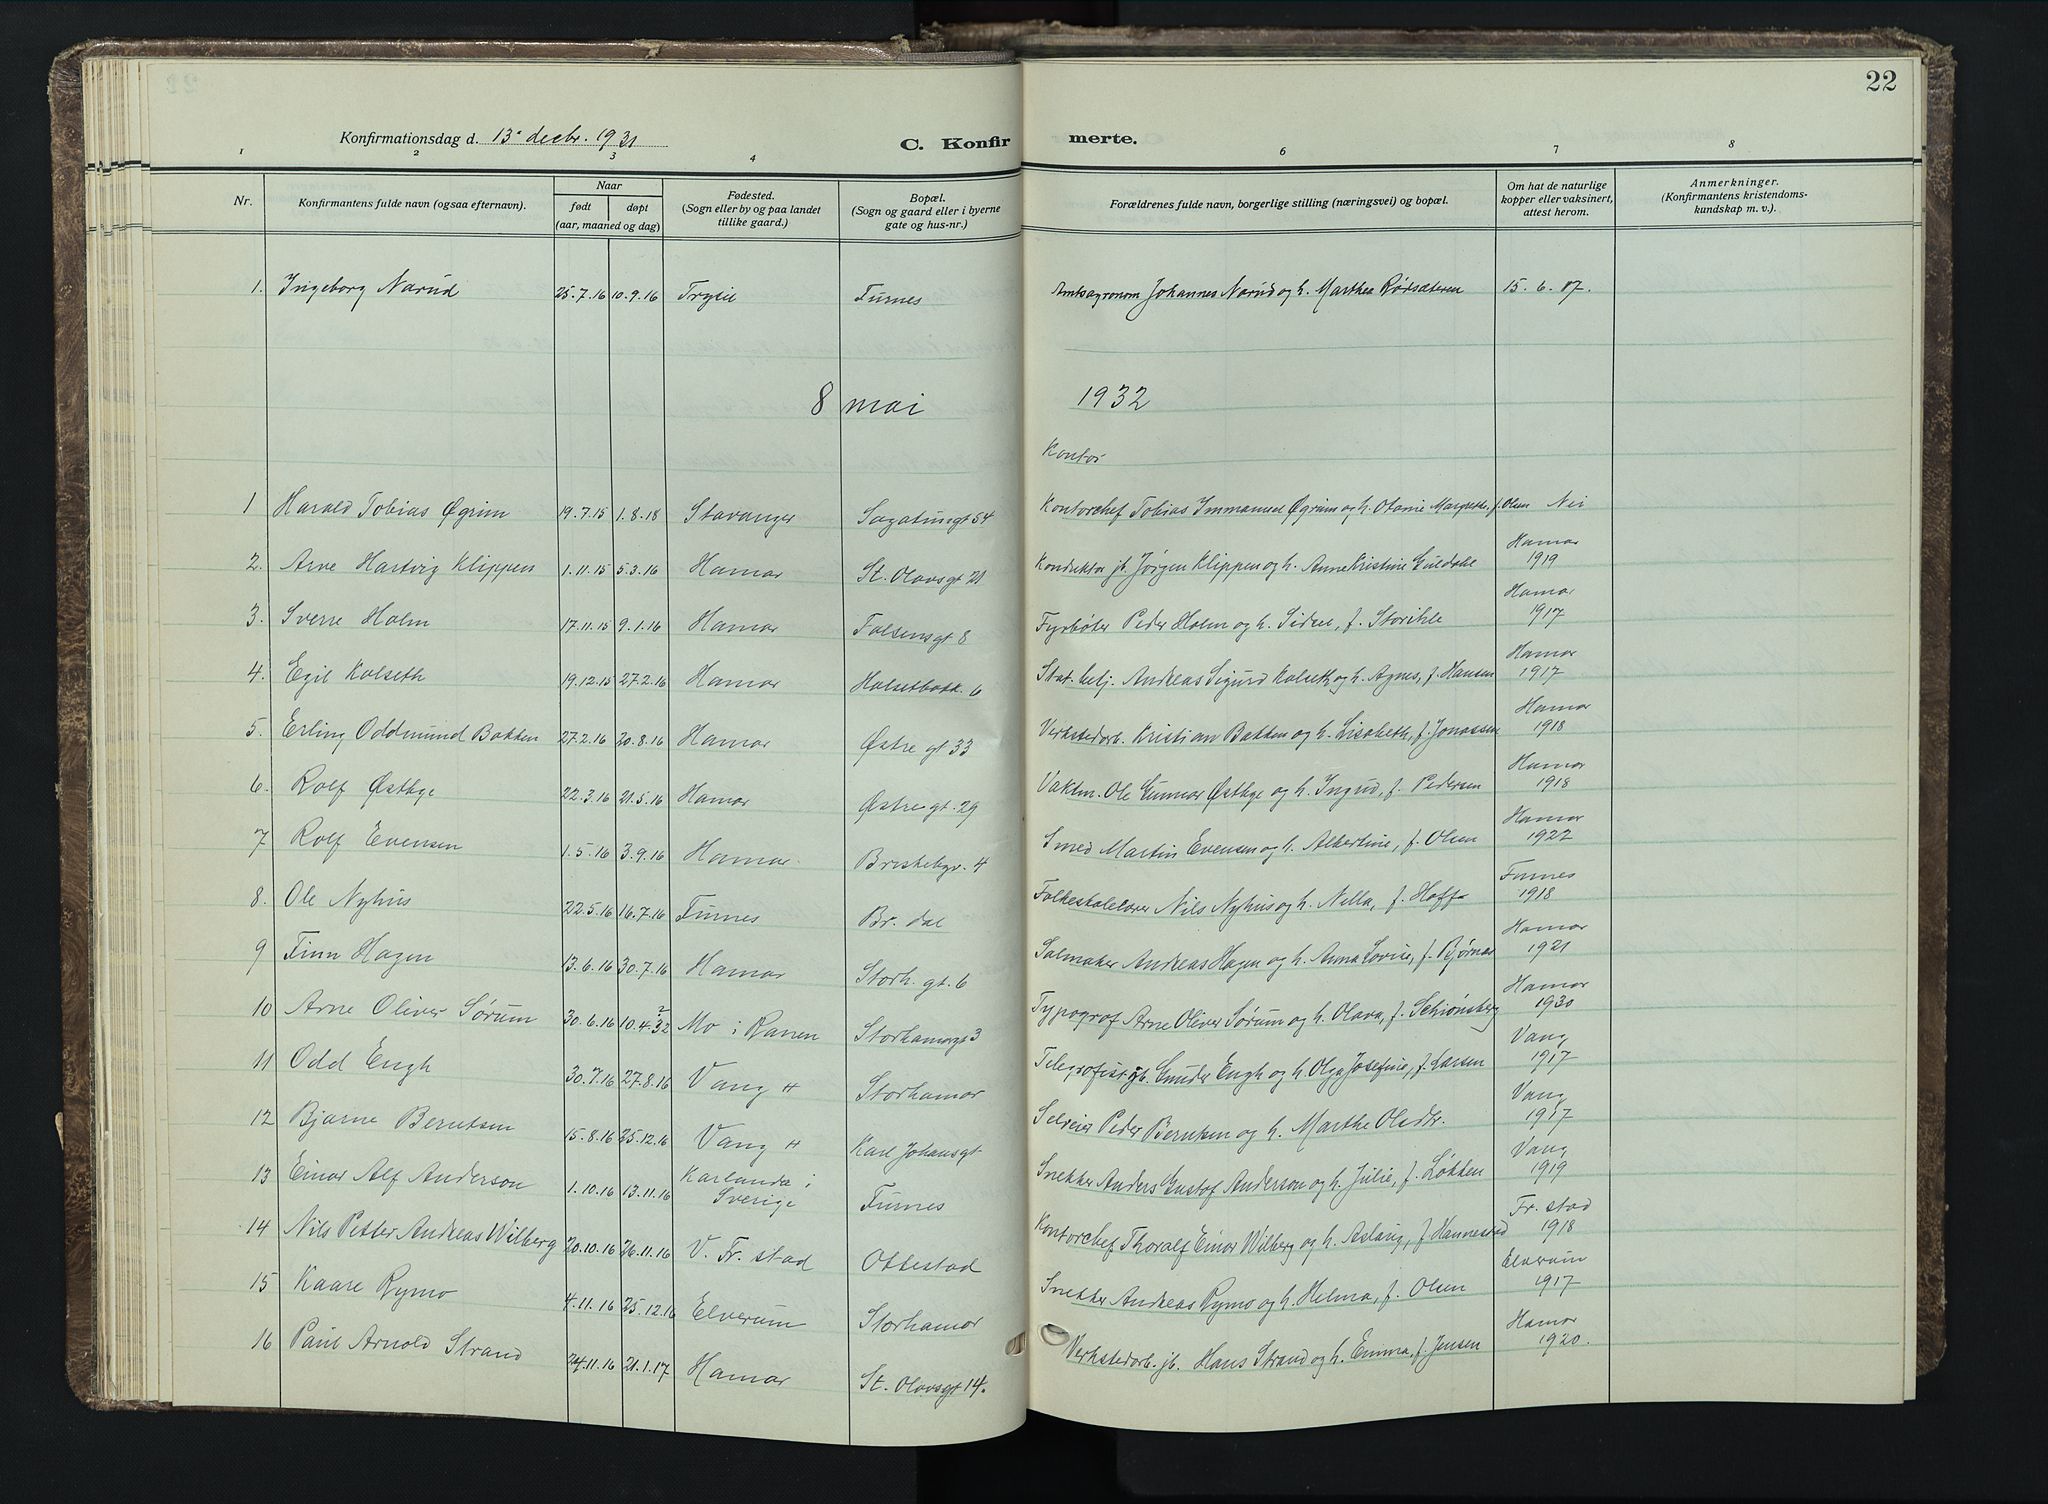 22
Konfirmationsdag d. 13. decbr. 1931
C. Konfirmerte.
1 2 3 4 5 6 7 8
Nr.
Konfirmantens fulde navn (ogsaa efternavn).
Naar
født døpt
(aar, maaned og dag)
Fødested.
(Sogn eller by og paa landet
tillike gaard.)
Bopæl.
(Sogn og gaard eller i byerne
gate og hus-nr.)
Forældrenes fulde navn, borgerlige stilling (næringsvei) og bopæl.
Om hat de naturlige
kopper eller vaksinert,
attest herom.
Anmerkninger.
(Konfirmantens kristendoms-
kundskap m. v.).
1. Ingeborg Narud 25.7.16 10.9.16 Trysil Furnes Amtsagronom Johannes Narud og h. Marthea Rødsæteren 15.6.07.
8 mai 1932
Kontor
1 Harald Tobias Øgrim 19.7.15 1.8.18 Stavanger Sagatunsgt 54 Kontorchef Tobias Immanuel Øgrim og h. Otonie Margrethe, f. Olsen Nei
2. Arne Hartvig Klippen 1.11.15 5.3.16 Hamar St. Olavsgt 21 Konduktør jb. Jørgen Klippen og h. Anne Kristine Guldahl Hamar 1919
3. Sverre Holm 17.11.15 9.1.16 Hamar Falsensgt 8 Fyrbøter Peder Holm og h. Sidsel, f. Storihle Hamar 1917
4. Egil Kolseth 19.12.15 27.2.16 Hamar Holsetbakk. 6 Stat. betj. Andreas Sigurd Kolseth og h. Agnes, f. Hansen Hamar 1917
5. Erling Oddmund Bakken 27.2.16 20.8.16 Hamar Østre gt 33 Verkstedarb. Kristian Bakken og h. Lisabeth, f. Jonassen Hamar 1918
6. Rolf Østbye 22.3.16 21.5.16 Hamar Østre gt. 29 Vaktm. Ole Gunnar Østbye og h. Ingrid, f. Pedersen Hamar 1918
7 Rolf Evensen 1.5.16 3.9.16 Hamar Briskebyv. 4 Smed Martin Evensen og h. Albertine, f. Olsen Hamar 1922
8. Ole Nyhus 22.5.16 16.7.16 Furnes Br. dal Folkeskolelærer Nils Nyhus og h. Nilla, f. Hoff Furnes 1918
9 Finn Hagen 13.6.16 30.7.16 Hamar Storh. gt. 6 Salmaker Andreas Hagen og h. Anna Lovise, f. Bjørnås Hamar 1921
10 Arne Oliver Sørum 30.6.16 10.4.32 Mo i Ranen Storhamargt 3 Typograf Arne Oliver Sørum og h. Olava, f. Schiønsberg Hamar 1930
11 Odd Engh 30.7.16 27.8.16 Vang H Storhamar Telegrafist jb. Gunder Engh og h. Olga Josefine, f. Larsen Vang 1917
12 Bjarne Berntsen 15.8.16 25.12.16 Vang H Karl Johansgt Selveier Peder Berntsen og h. Marthe Olsdtr. Vang 1917
13 Einar Alf Anderson 1.10.16 13.11.16 Karlanda i Sverige Furnes Snekker Anders Gustaf Anderson og h. Julie, f. Løkken Vang 1919
14 Nils Petter Andreas Wilberg 20.10.16 26.11.16 V. Fr. stad Ottestad Kontorchef Thoralf Einar Wilberg og h. Aslaug, f. Hannestad Fr. stad 1918
15 Kaare Rymo 4.11.16 25.12.16 Elverum Storhamar Snekker Andreas Rymo og h. Helma, f. Olsen Elverum 1917
16 Paul Arnold Strand 24.11.16 21.1.17 Hamar St. Olavsgt 14. Verkstedarb. jb. Hans Strand og h. Emma, f. Jensen Hamar 1920.